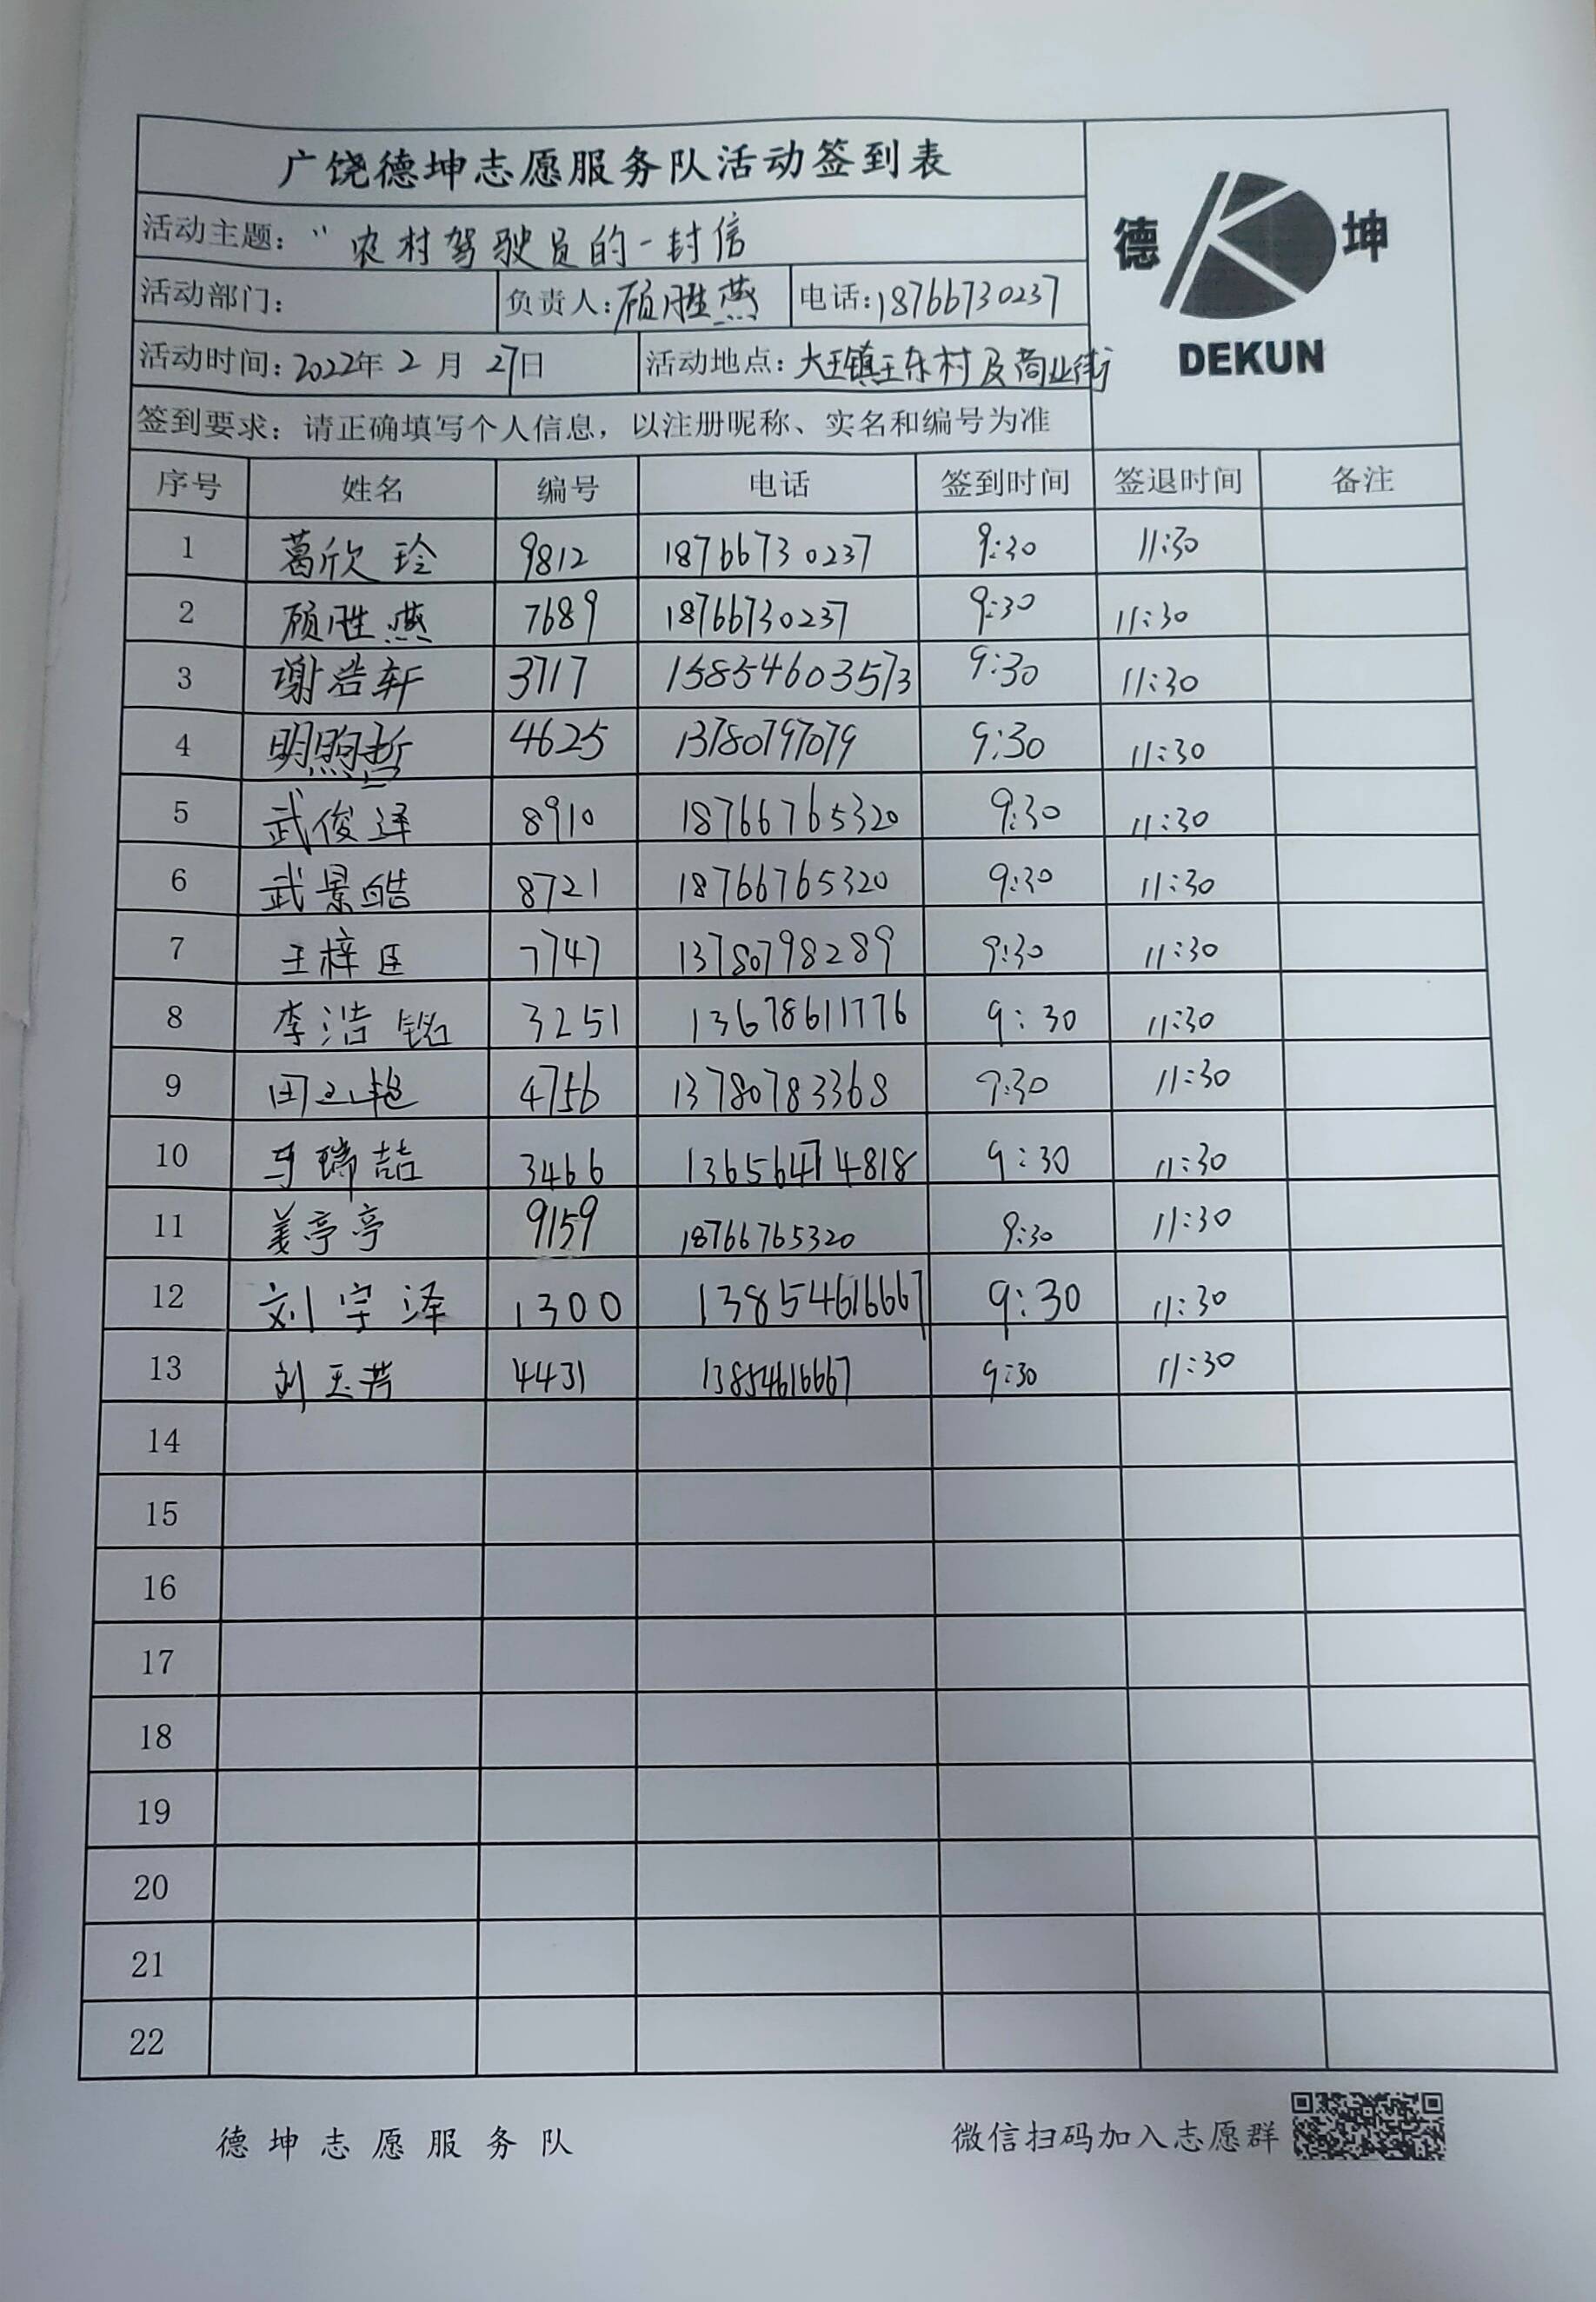 广饶德坤志愿服务队活动签到表
德 坤
DEKUN
活动主题："农村驾驶员的一封信
活动部门： 负责人：顾胜燕 电话：18766730237
活动时间：2022年2月27日 活动地点：大王镇王东村及商业街
签到要求：请正确填写个人信息，以注册昵称、实名和编号为准
序号 姓名 编号 电话 签到时间 签退时间 备注
1 葛欣玲 9812 18766730237 9:30 11:30
2 顾胜燕 7689 18766730237 9:30 11:30
3 谢浩轩 3717 15854603573 9:30 11:30
4 明煦哲 4625 13780797079 9:30 11:30
5 武俊泽 8910 18766765320 9:30 11:30
6 武景皓 8721 18766765320 9:30 11:30
7 王梓臣 7747 13780798289 9:30 11:30
8 李浩铭 3251 13678611776 9:30 11:30
9 田 4756 13780783368 9:30 11:30
10 马瑞喆 3466 13656474818 9:30 11:30
11 姜亭亭 9159 18766765320 9:30 11:30
12 刘宇泽 1300 13854616667 9:30 11:30
13 刘玉芳 4431 13854616667 9:30 11:30
14
15
16
17
18
19
20
21
22
德坤志愿服务队 微信扫码加入志愿群